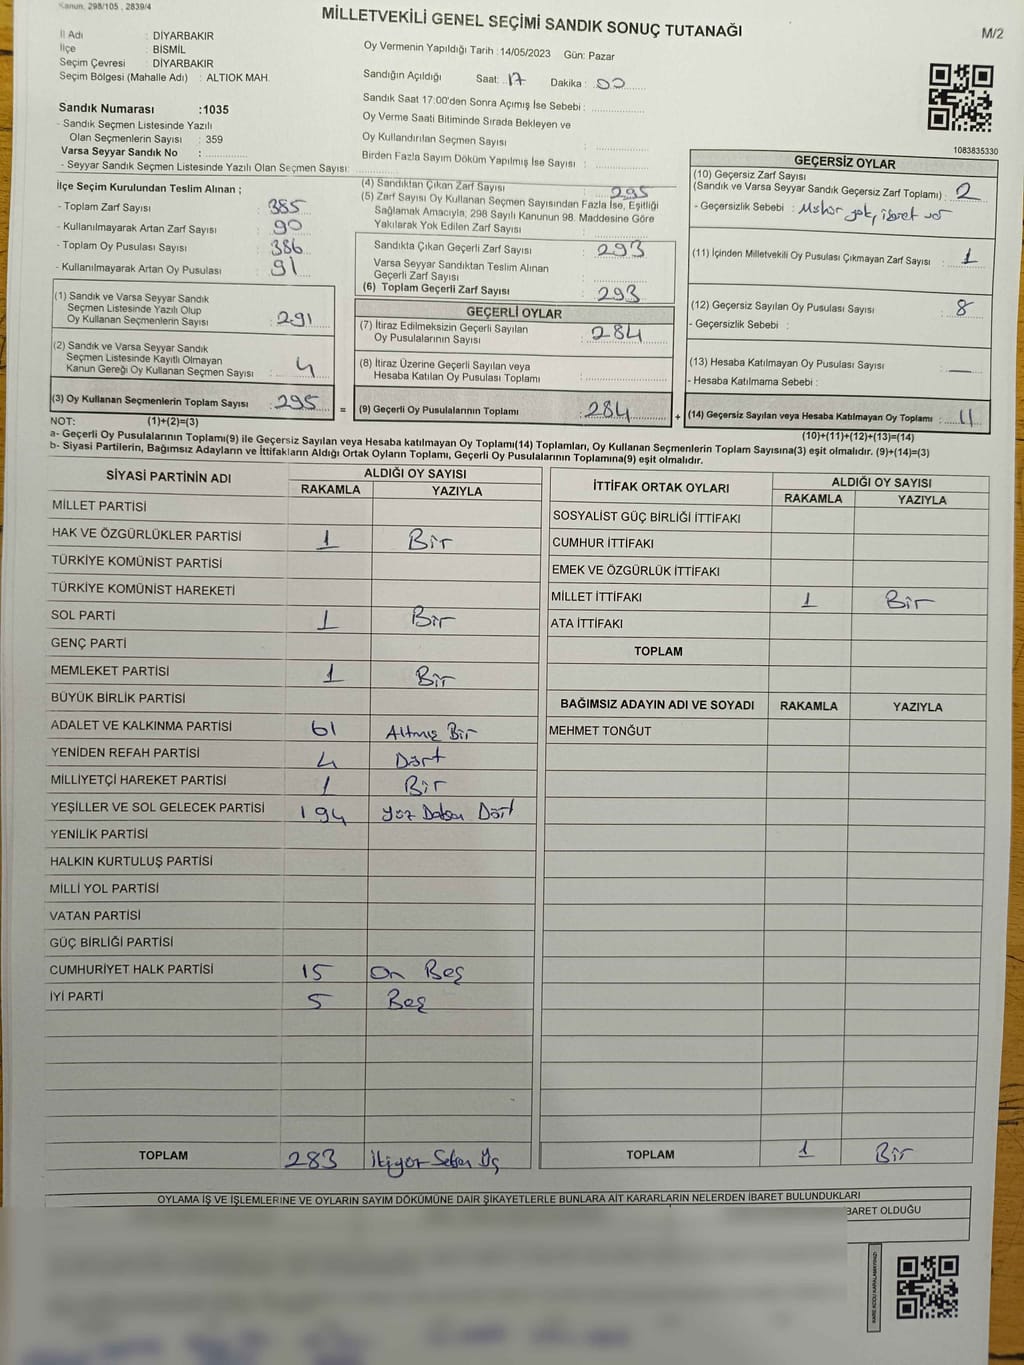 Kanun, 298/105 , 2839/4
MİLLETVEKİLİ GENEL SEÇİMİ SANDIK SONUÇ TUTANAĞI
M/2
İl Adı : DİYARBAKIR
İlçe : BİSMİL
Seçim Çevresi : DİYARBAKIR
Seçim Bölgesi (Mahalle Adı) : ALTIOK MAH.
Oy Vermenin Yapıldığı Tarih : 14/05/2023 Gün: Pazar
Sandığın Açıldığı Saat: 17 Dakika : 00
Sandık Saat 17:00'den Sonra Açımış İse Sebebi :
Oy Verme Saati Bitiminde Sırada Bekleyen ve
Oy Kullandırılan Seçmen Sayısı :
Birden Fazla Sayım Döküm Yapılmış İse Sayısı :
Sandık Numarası :1035
- Sandık Seçmen Listesinde Yazılı
Olan Seçmenlerin Sayısı : 359
Varsa Seyyar Sandık No :
- Seyyar Sandık Seçmen Listesinde Yazılı Olan Seçmen Sayısı:
1083835330
İlçe Seçim Kurulundan Teslim Alınan ;
- Toplam Zarf Sayısı : 385
- Kullanılmayarak Artan Zarf Sayısı : 90
- Toplam Oy Pusulası Sayısı : 386
- Kullanılmayarak Artan Oy Pusulası : 91
(1) Sandık ve Varsa Seyyar Sandık
Seçmen Listesinde Yazılı Olup
Oy Kullanan Seçmenlerin Sayısı : 291
(2) Sandık ve Varsa Seyyar Sandık
Seçmen Listesinde Kayıtlı Olmayan
Kanun Gereği Oy Kullanan Seçmen Sayısı : 4
(3) Oy Kullanan Seçmenlerin Toplam Sayısı : 295
(4) Sandıktan Çıkan Zarf Sayısı : 295
(5) Zarf Sayısı Oy Kullanan Seçmen Sayısından Fazla İse, Eşitliği
Sağlamak Amacıyla, 298 Sayılı Kanunun 98. Maddesine Göre
Yakılarak Yok Edilen Zarf Sayısı :
Sandıkta Çıkan Geçerli Zarf Sayısı : 293
Varsa Seyyar Sandıktan Teslim Alınan
Geçerli Zarf Sayısı :
(6) Toplam Geçerli Zarf Sayısı : 293
GEÇERLİ OYLAR
(7) İtiraz Edilmeksizin Geçerli Sayılan
Oy Pusulalarının Sayısı : 284
(8) İtiraz Üzerine Geçerli Sayılan veya
Hesaba Katılan Oy Pusulası Toplamı :
= (9) Geçerli Oy Pusulalarının Toplamı : 284
GEÇERSİZ OYLAR
(10) Geçersiz Zarf Sayısı
(Sandık ve Varsa Seyyar Sandık Geçersiz Zarf Toplamı) : 2
- Geçersizlik Sebebi : Mühür yok, işaret var
(11) İçinden Milletvekili Oy Pusulası Çıkmayan Zarf Sayısı : 1
(12) Geçersiz Sayılan Oy Pusulası Sayısı : 8
- Geçersizlik Sebebi :
(13) Hesaba Katılmayan Oy Pusulası Sayısı : —
- Hesaba Katılmama Sebebi :
+ (14) Geçersiz Sayılan veya Hesaba Katılmayan Oy Toplamı : 11
NOT: (1)+(2)=(3)
(10)+(11)+(12)+(13)=(14)
a- Geçerli Oy Pusulalarının Toplamı(9) ile Geçersiz Sayılan veya Hesaba katılmayan Oy Toplamı(14) Toplamları, Oy Kullanan Seçmenlerin Toplam Sayısına(3) eşit olmalıdır. (9)+(14)=(3)
b- Siyasi Partilerin, Bağımsız Adayların ve İttifakların Aldığı Ortak Oyların Toplamı, Geçerli Oy Pusulalarının Toplamına(9) eşit olmalıdır.
SİYASİ PARTİNİN ADI ALDIĞI OY SAYISI
RAKAMLA YAZIYLA
MİLLET PARTİSİ
HAK VE ÖZGÜRLÜKLER PARTİSİ 1 Bir
TÜRKİYE KOMÜNİST PARTİSİ
TÜRKİYE KOMÜNİST HAREKETİ
SOL PARTİ 1 Bir
GENÇ PARTİ
MEMLEKET PARTİSİ 1 Bir
BÜYÜK BİRLİK PARTİSİ
ADALET VE KALKINMA PARTİSİ 61 Altmış Bir
YENİDEN REFAH PARTİSİ 4 Dört
MİLLİYETÇİ HAREKET PARTİSİ 1 Bir
YEŞİLLER VE SOL GELECEK PARTİSİ 194 Yüz Doksan Dört
YENİLİK PARTİSİ
HALKIN KURTULUŞ PARTİSİ
MİLLİ YOL PARTİSİ
VATAN PARTİSİ
GÜÇ BİRLİĞİ PARTİSİ
CUMHURİYET HALK PARTİSİ 15 On Beş
İYİ PARTİ 5 Beş
TOPLAM 283 İkiyüz Seksen Üç
İTTİFAK ORTAK OYLARI ALDIĞI OY SAYISI
RAKAMLA YAZIYLA
SOSYALİST GÜÇ BİRLİĞİ İTTİFAKI
CUMHUR İTTİFAKI
EMEK VE ÖZGÜRLÜK İTTİFAKI
MİLLET İTTİFAKI 1 Bir
ATA İTTİFAKI
TOPLAM
BAĞIMSIZ ADAYIN ADI VE SOYADI RAKAMLA YAZIYLA
MEHMET TONĞUT
TOPLAM 1 Bir
OYLAMA İŞ VE İŞLEMLERİNE VE OYLARIN SAYIM DÖKÜMÜNE DAİR ŞİKAYETLERLE BUNLARA AİT KARARLARIN NELERDEN İBARET BULUNDUKLARI
BARET OLDUĞU
KARE KODU KARALAMAYINIZ!